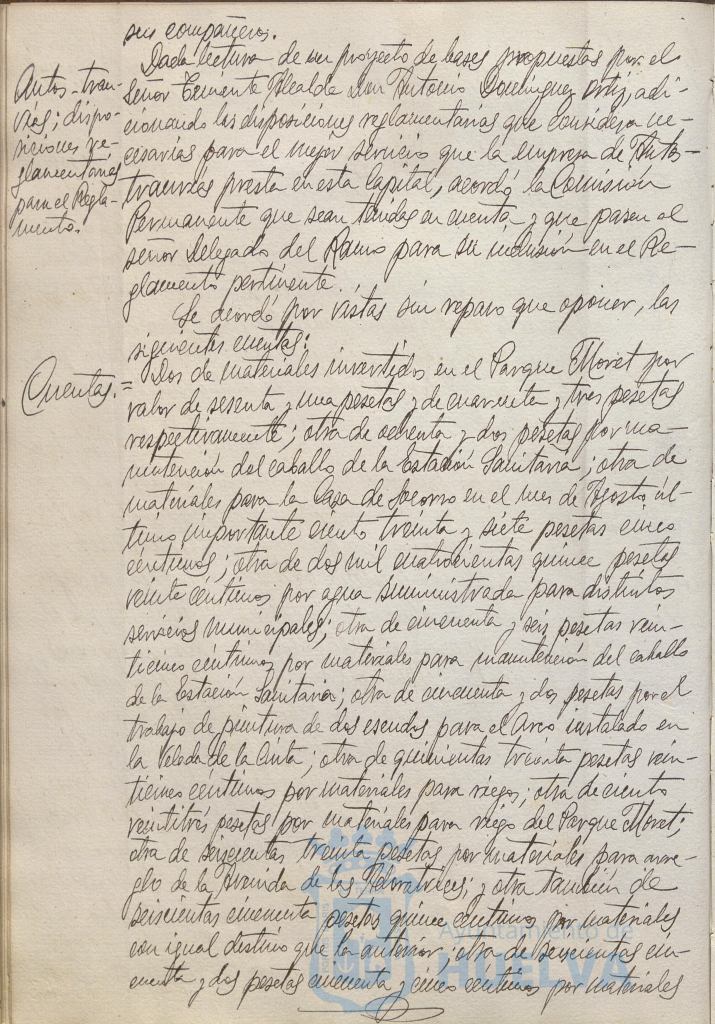 sus compañeros.
Autos-tran-
vías; dispo-
siciones re-
glamentarias
para el Regla-
mento.
Dada lectura de un proyecto de bases propuestas por el
señor Teniente Alcalde don Antonio Domínguez Ortiz, adi-
cionando las disposiciones reglamentarias que considera ne-
cesarias para el mejor servicio que la empresa de Autos-
tranvías presta en esta Capital, acordó la Comisión
Permanente que sean tenidas en cuenta y que pasen al
señor Delegado del Ramo para su inclusión en el Re-
glamento pertinente.
Se acordó por vistas sin reparo que oponer, las
siguientes cuentas:
Cuentas.=
Dos de materiales invertidos en el Parque Moret por
valor de sesenta y una pesetas y de cuarenta y tres pesetas
respectivamente; otra de ochenta y dos pesetas por ma-
nutención del caballo de la Estación Sanitaria; otra de
materiales para la Casa de Socorro en el mes de Agosto úl-
timo importante ciento treinta y siete pesetas cinco
céntimos; otra de dos mil cuatrocientas quince pesetas
veinte céntimos por agua suministrada para distintos
servicios municipales; otra de cincuenta y seis pesetas vein-
ticinco céntimos por materiales para manutención del caballo
de la Estación Sanitaria; otra de cincuenta y dos pesetas por el
trabajo de pintura de dos escudos para el Arco instalado en
la Velada de la Cinta; otra de quinientas treinta pesetas vein-
ticinco céntimos por materiales para riegos; otra de ciento
veintitrés pesetas por materiales para riego del Parque Moret;
otra de seiscientas treinta pesetas por materiales para arre-
glo de la Avenida de las Adoratrices; y otra también de
seiscientas cincuenta pesetas quince céntimos por materiales
con igual destino que la anterior; otra de seiscientas cin-
cuenta y dos pesetas cincuenta y cinco céntimos por materiales
Ayuntamiento de
HUELVA